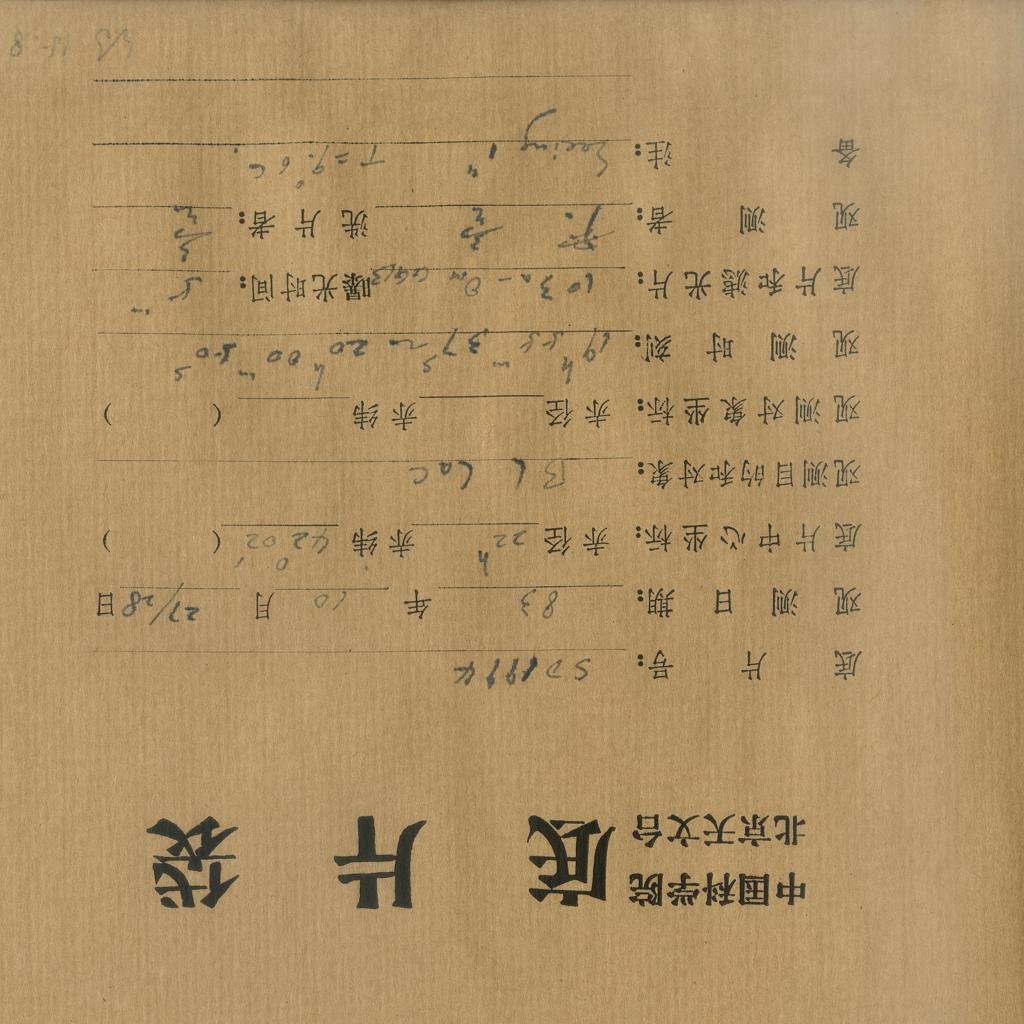 中国科学院
北京天文台
底片袋
底片号： SD1994
观测日期： 83 年 10 月 27/28 日
底片中心坐标： 赤径 22h 赤纬 42°02′ ( )
观测目的和对象： BL Lac
观测对象坐标： 赤径 赤纬 ( )
观测时刻： 19h 55m 37s ~ 20h 00m 50s
底片和滤光片： 103a-O 曝光时间： 5m
观测者： 洗片者：
备注： Seeing 1" T=9.°6C.